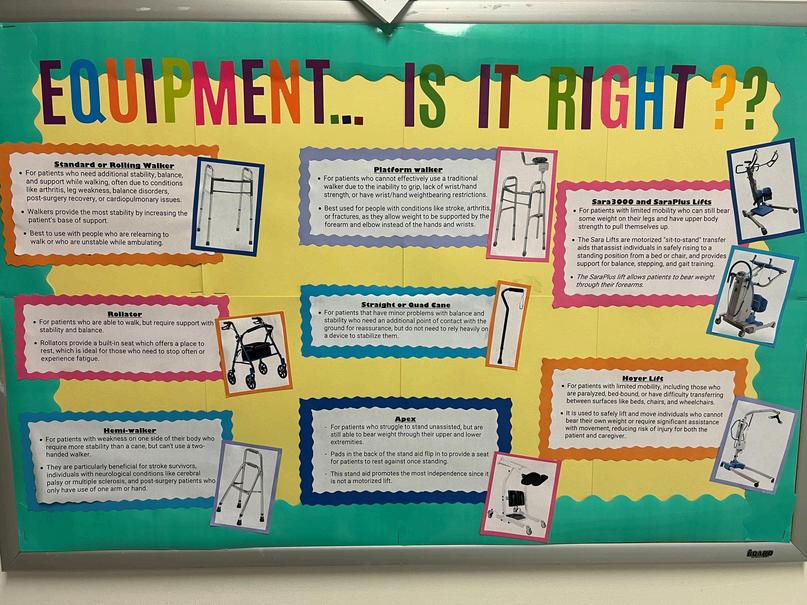 EQUIPMENT... IS IT RIGHT ??
Standard or Rolling Walker
• For patients who need additional stability, balance,
and support while walking, often due to conditions
like arthritis, leg weakness, balance disorders,
post-surgery recovery, or cardiopulmonary issues.
• Walkers provide the most stability by increasing the
patient's base of support.
• Best to use with people who are relearning to
walk or who are unstable while ambulating.
Rollator
• For patients who are able to walk, but require support with
stability and balance.
• Rollators provide a built-in seat which offers a place to
rest, which is ideal for those who need to stop often or
experience fatigue.
Hemi-walker
• For patients with weakness on one side of their body who
require more stability than a cane, but can't use a two-
handed walker.
• They are particularly beneficial for stroke survivors,
individuals with neurological conditions like cerebral
palsy or multiple sclerosis, and post-surgery patients who
only have use of one arm or hand.
Platform walker
• For patients who cannot effectively use a traditional
walker due to the inability to grip, lack of wrist/hand
strength, or have wrist/hand weightbearing restrictions.
• Best used for people with conditions like stroke, arthritis,
or fractures, as they allow weight to be supported by the
forearm and elbow instead of the hands and wrists.
Straight or Quad Cane
• For patients that have minor problems with balance and
stability who need an additional point of contact with the
ground for reassurance, but do not need to rely heavily on
a device to stabilize them.
Apex
- For patients who struggle to stand unassisted, but are
still able to bear weight through their upper and lower
extremities.
- Pads in the back of the stand aid flip in to provide a seat
for patients to rest against once standing.
- This stand aid promotes the most independence since it
is not a motorized lift.
Sara3000 and SaraPlus Lifts
• For patients with limited mobility who can still bear
some weight on their legs and have upper body
strength to pull themselves up.
• The Sara Lifts are motorized "sit-to-stand" transfer
aids that assist individuals in safely rising to a
standing position from a bed or chair, and provides
support for balance, stepping, and gait training.
• The SaraPlus lift allows patients to bear weight
through their forearms.
Hoyer Lift
• For patients with limited mobility, including those who
are paralyzed, bed-bound, or have difficulty transferring
between surfaces like beds, chairs, and wheelchairs.
• It is used to safely lift and move individuals who cannot
bear their own weight or require significant assistance
with movement, reducing risk of injury for both the
patient and caregiver.